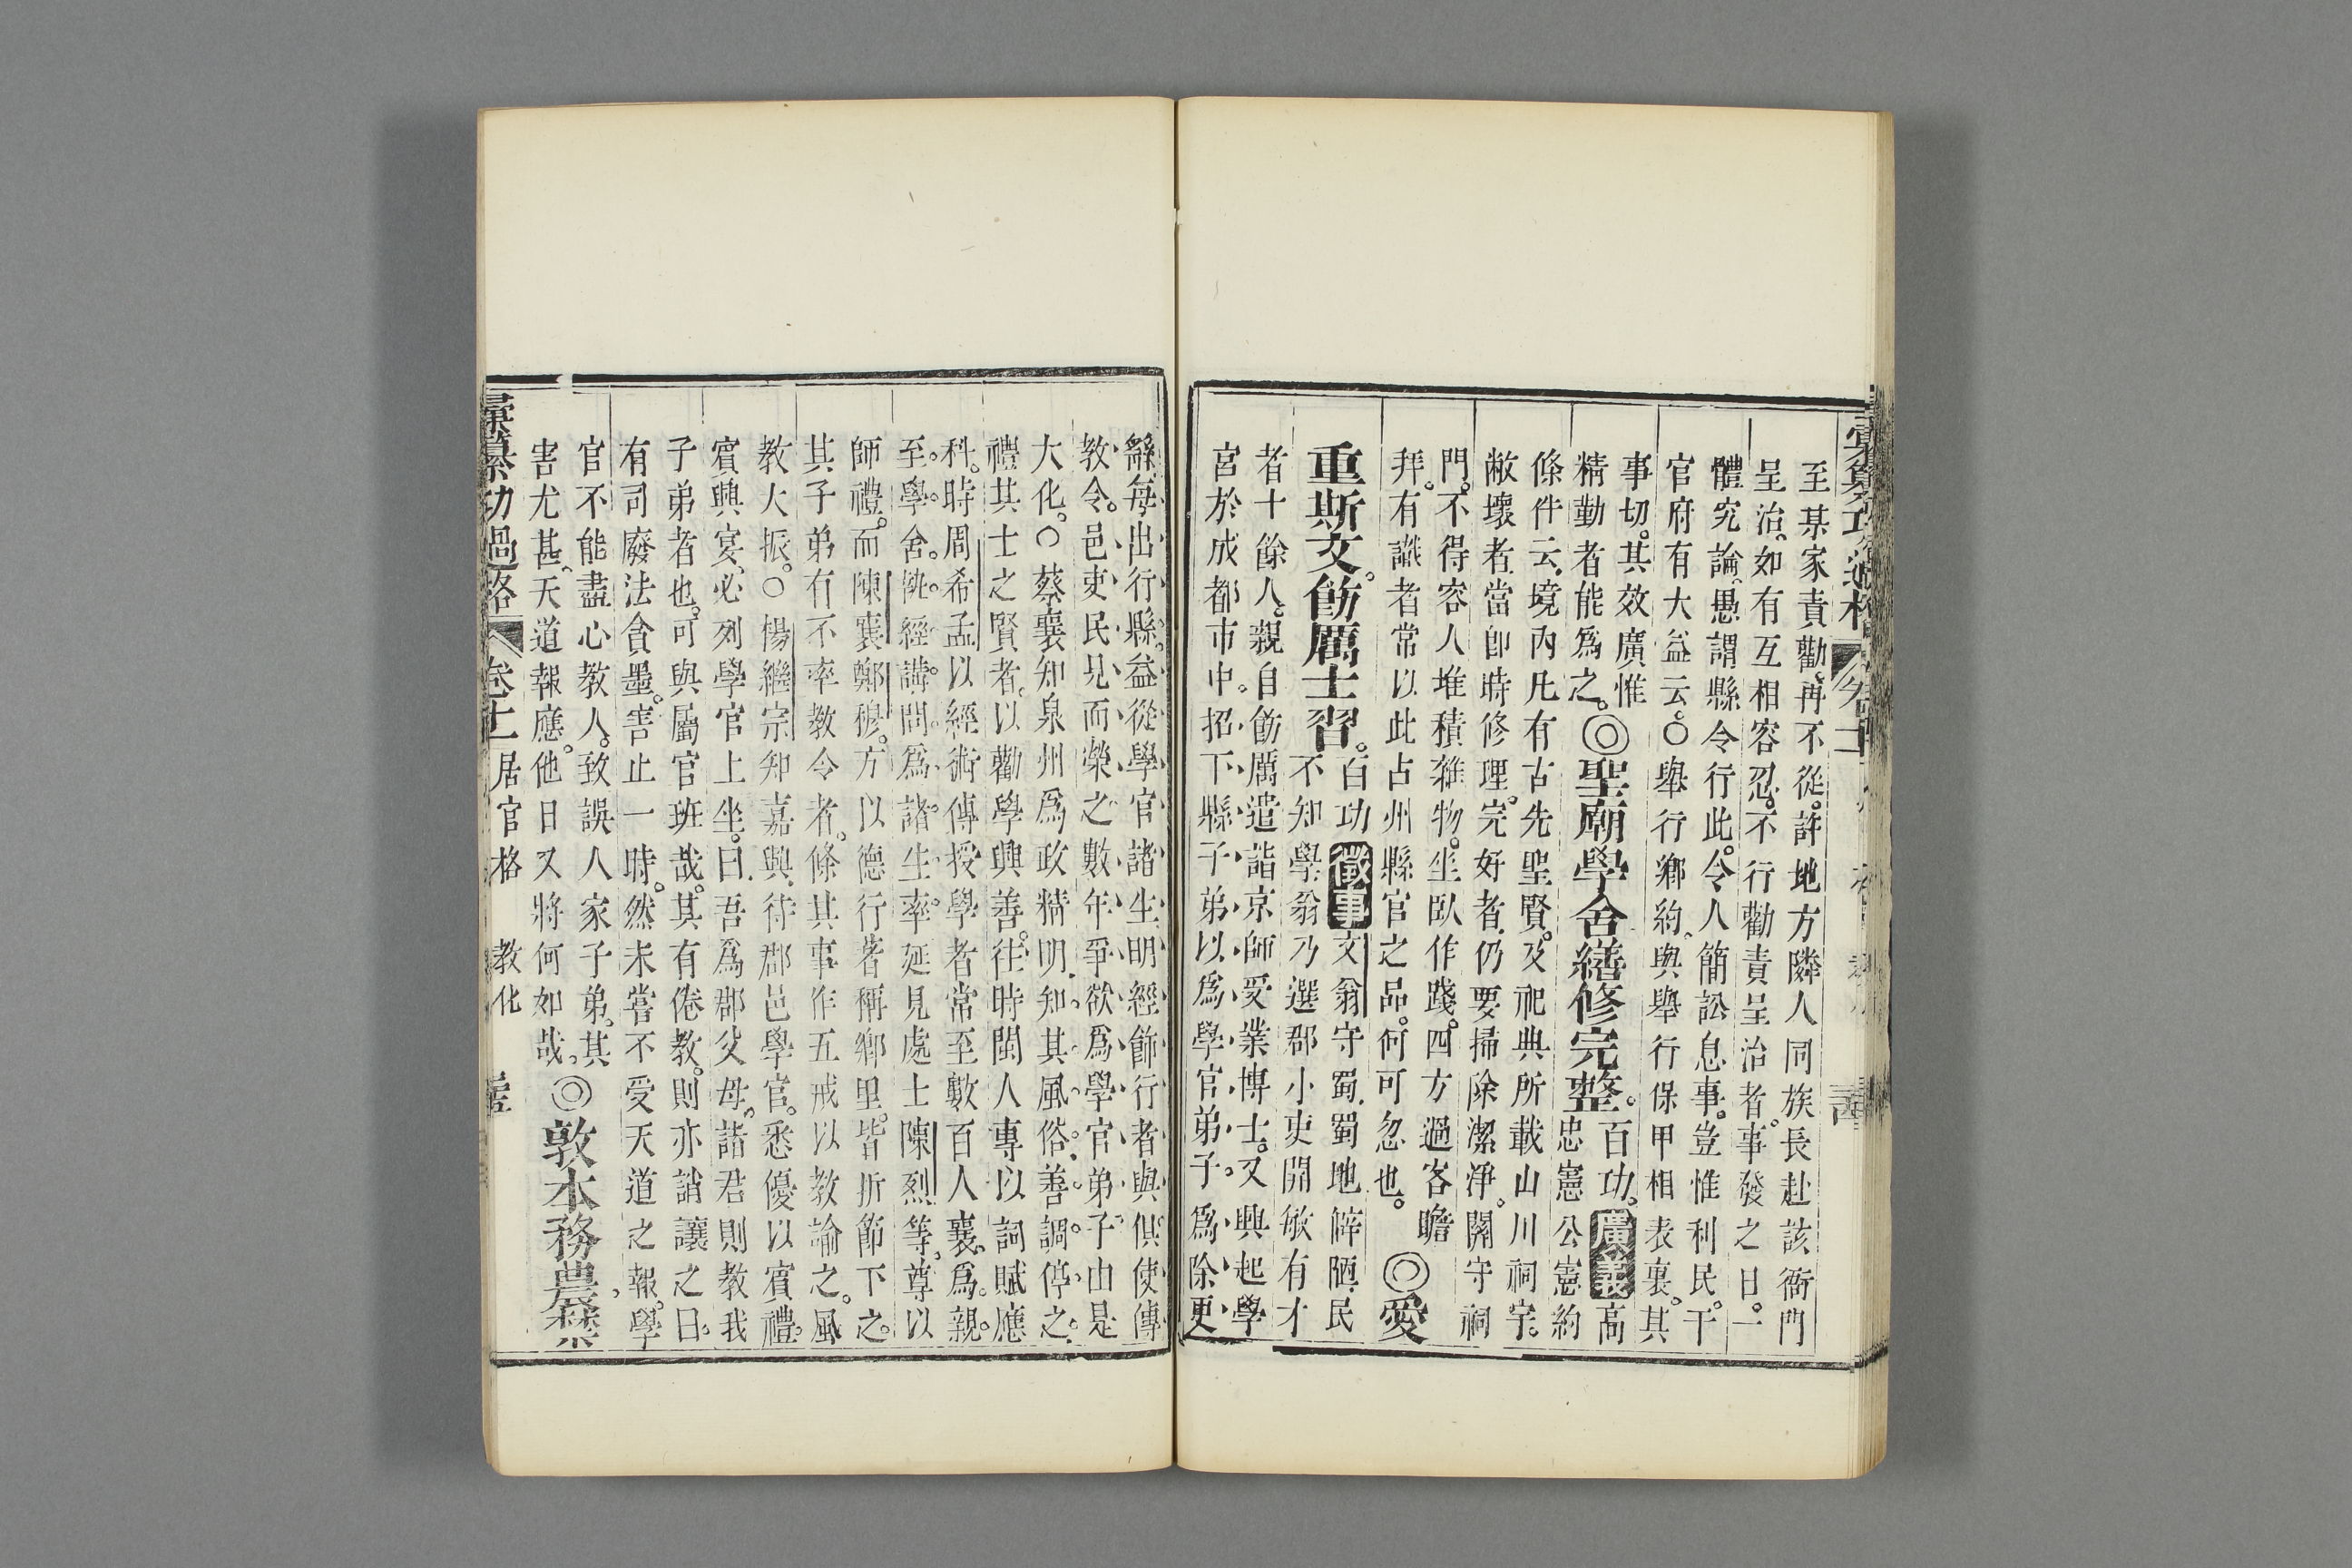 至某家責勸再不從許地方隣人同族長赴該衙門
呈治如有互相容忍不行勸責呈治者事發之日一
體究論愚謂縣令行此令人簡訟息事豈惟利民干
官府有大益云〇舉行鄉約與舉行保甲相表裏其
事切其效廣惟
精勤者能爲之◎聖廟學舍繕修完整百功廣義高
忠憲公憲約
條件云境內凡有古先聖賢及祀典所載山川祠宇
敝壞者當卽時修理完好者仍要掃除潔淨關守祠
門不得容人堆積雜物坐臥作踐四方過客瞻
拜有識者常以此占州縣官之品何可忽也◎愛
重斯文飭厲士習百功徵事文翁守蜀蜀地僻陋民
不知學翁乃選郡小吏開敏有才
者十餘人親自飭厲遣詣京師受業博士又興起學
宮於成都市中招下縣子弟以爲學官弟子爲除更
繇每出行縣益從學官諸生明經飭行者與俱使傳
教令邑吏民見而榮之數年爭欲爲學官弟子由是
大化〇蔡襄知泉州爲政精明知其風俗善調停之
禮其士之賢者以勸學興善往時閩人專以詞賦應
科時周希孟以經術傳授學者常至數百人襄爲親
至學舍執經講問爲諸生率延見處士陳烈等尊以
師禮而陳襄鄭穆方以德行著稱鄉里皆折節下之
其子弟有不率教令者條其事作五戒以教諭之風
教大振〇楊繼宗知嘉興待郡邑學官悉優以賓禮
賓興宴必列學官上坐曰吾爲郡父母諸君則教我
子弟者也可與屬官班哉其有倦教則亦誚讓之曰
有司廢法貪墨害止一時然未嘗不受天道之報學
官不能盡心教人致誤人家子弟其
害尤甚天道報應他日又將何如哉◎敦本務農禁
彙纂功過格 卷十二 居官格 教化